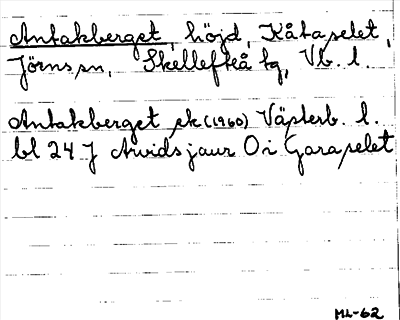 Antakberget, höjd, Kåtaselet,
Jörns sn, Skellefteå tg, Vb. l.
Antakberget ek (1960) Västerb. l.
bl 24 J Arvidsjaur Ö i Garaselet
ML-62